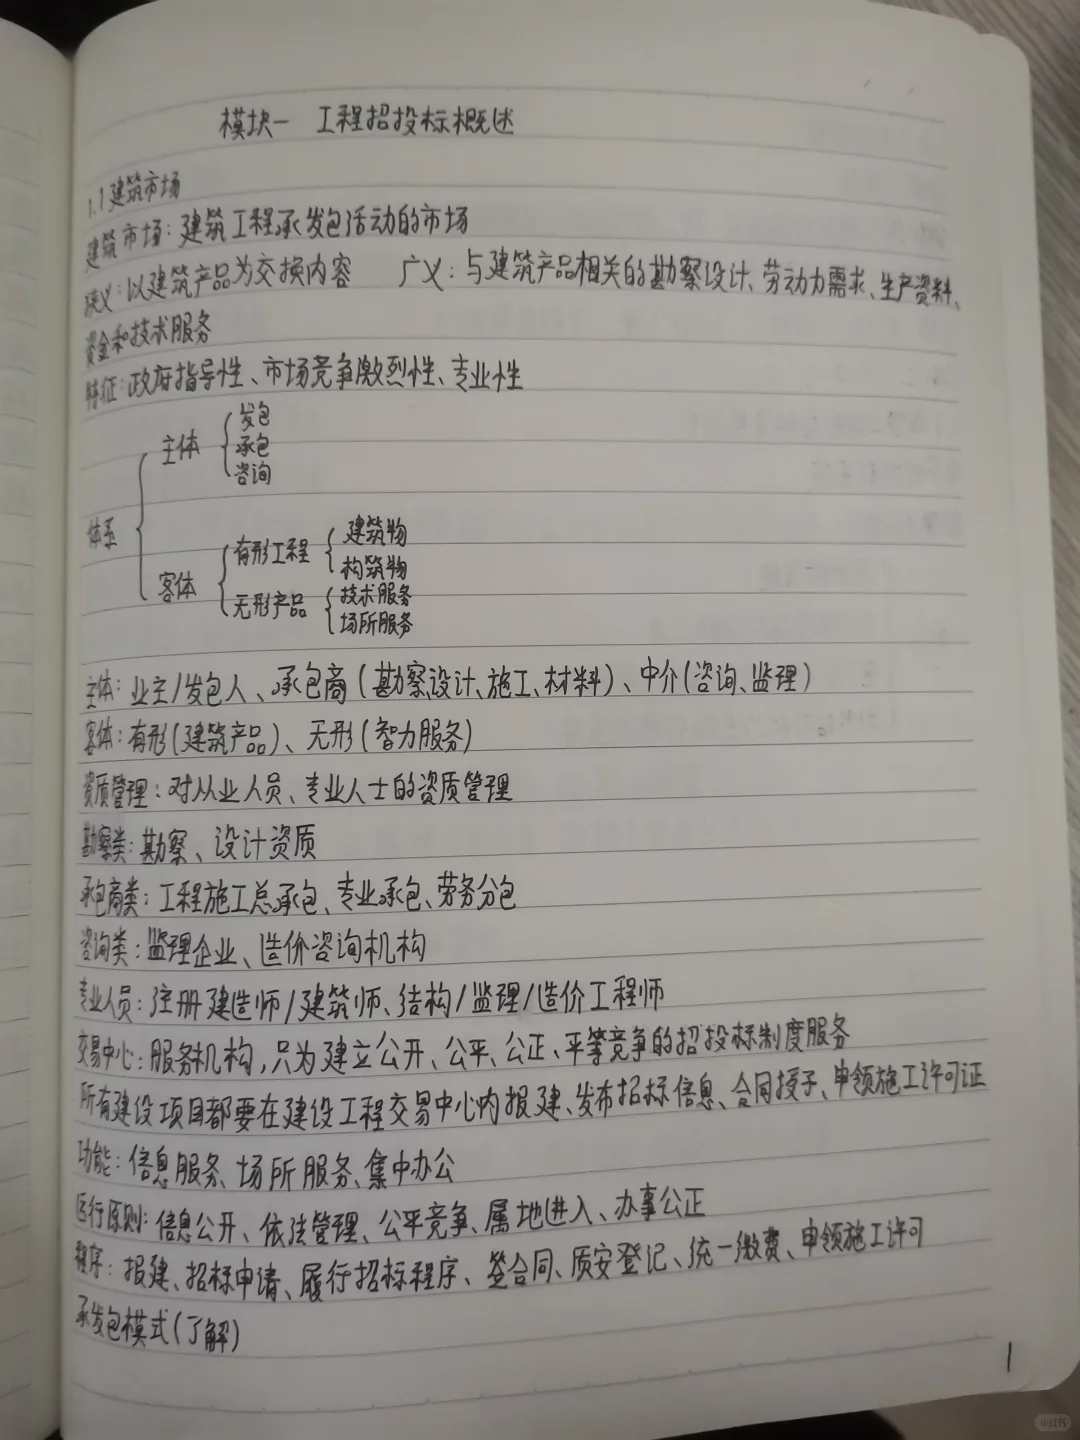 模块一 工程招投标概述
1.1 建筑市场
建筑市场：建筑工程承发包活动的市场
狭义：以建筑产品为交换内容 广义：与建筑产品相关的勘察设计、劳动力需求、生产资料、
资金和技术服务
特征：政府指导性、市场竞争激烈性、专业性
发包
主体 承包
咨询
体系
有形工程 建筑物
构筑物
客体
无形产品 技术服务
场所服务
主体：业主/发包人、承包商（勘察设计、施工、材料）、中介（咨询、监理）
客体：有形（建筑产品）、无形（智力服务）
资质管理：对从业人员、专业人士的资质管理
勘察类：勘察、设计资质
承包商类：工程施工总承包、专业承包、劳务分包
咨询类：监理企业、造价咨询机构
专业人员：注册建造师/建筑师、结构/监理/造价工程师
交易中心：服务机构，只为建立公开、公平、公正、平等竞争的招投标制度服务
所有建设项目都要在建设工程交易中心内报建、发布招标信息、合同授予、申领施工许可证
功能：信息服务、场所服务、集中办公
运行原则：信息公开、依法管理、公平竞争、属地进入、办事公正
程序：报建、招标申请、履行招标程序、签合同、质安登记、统一缴费、申领施工许可
承发包模式（了解）
1
小红书